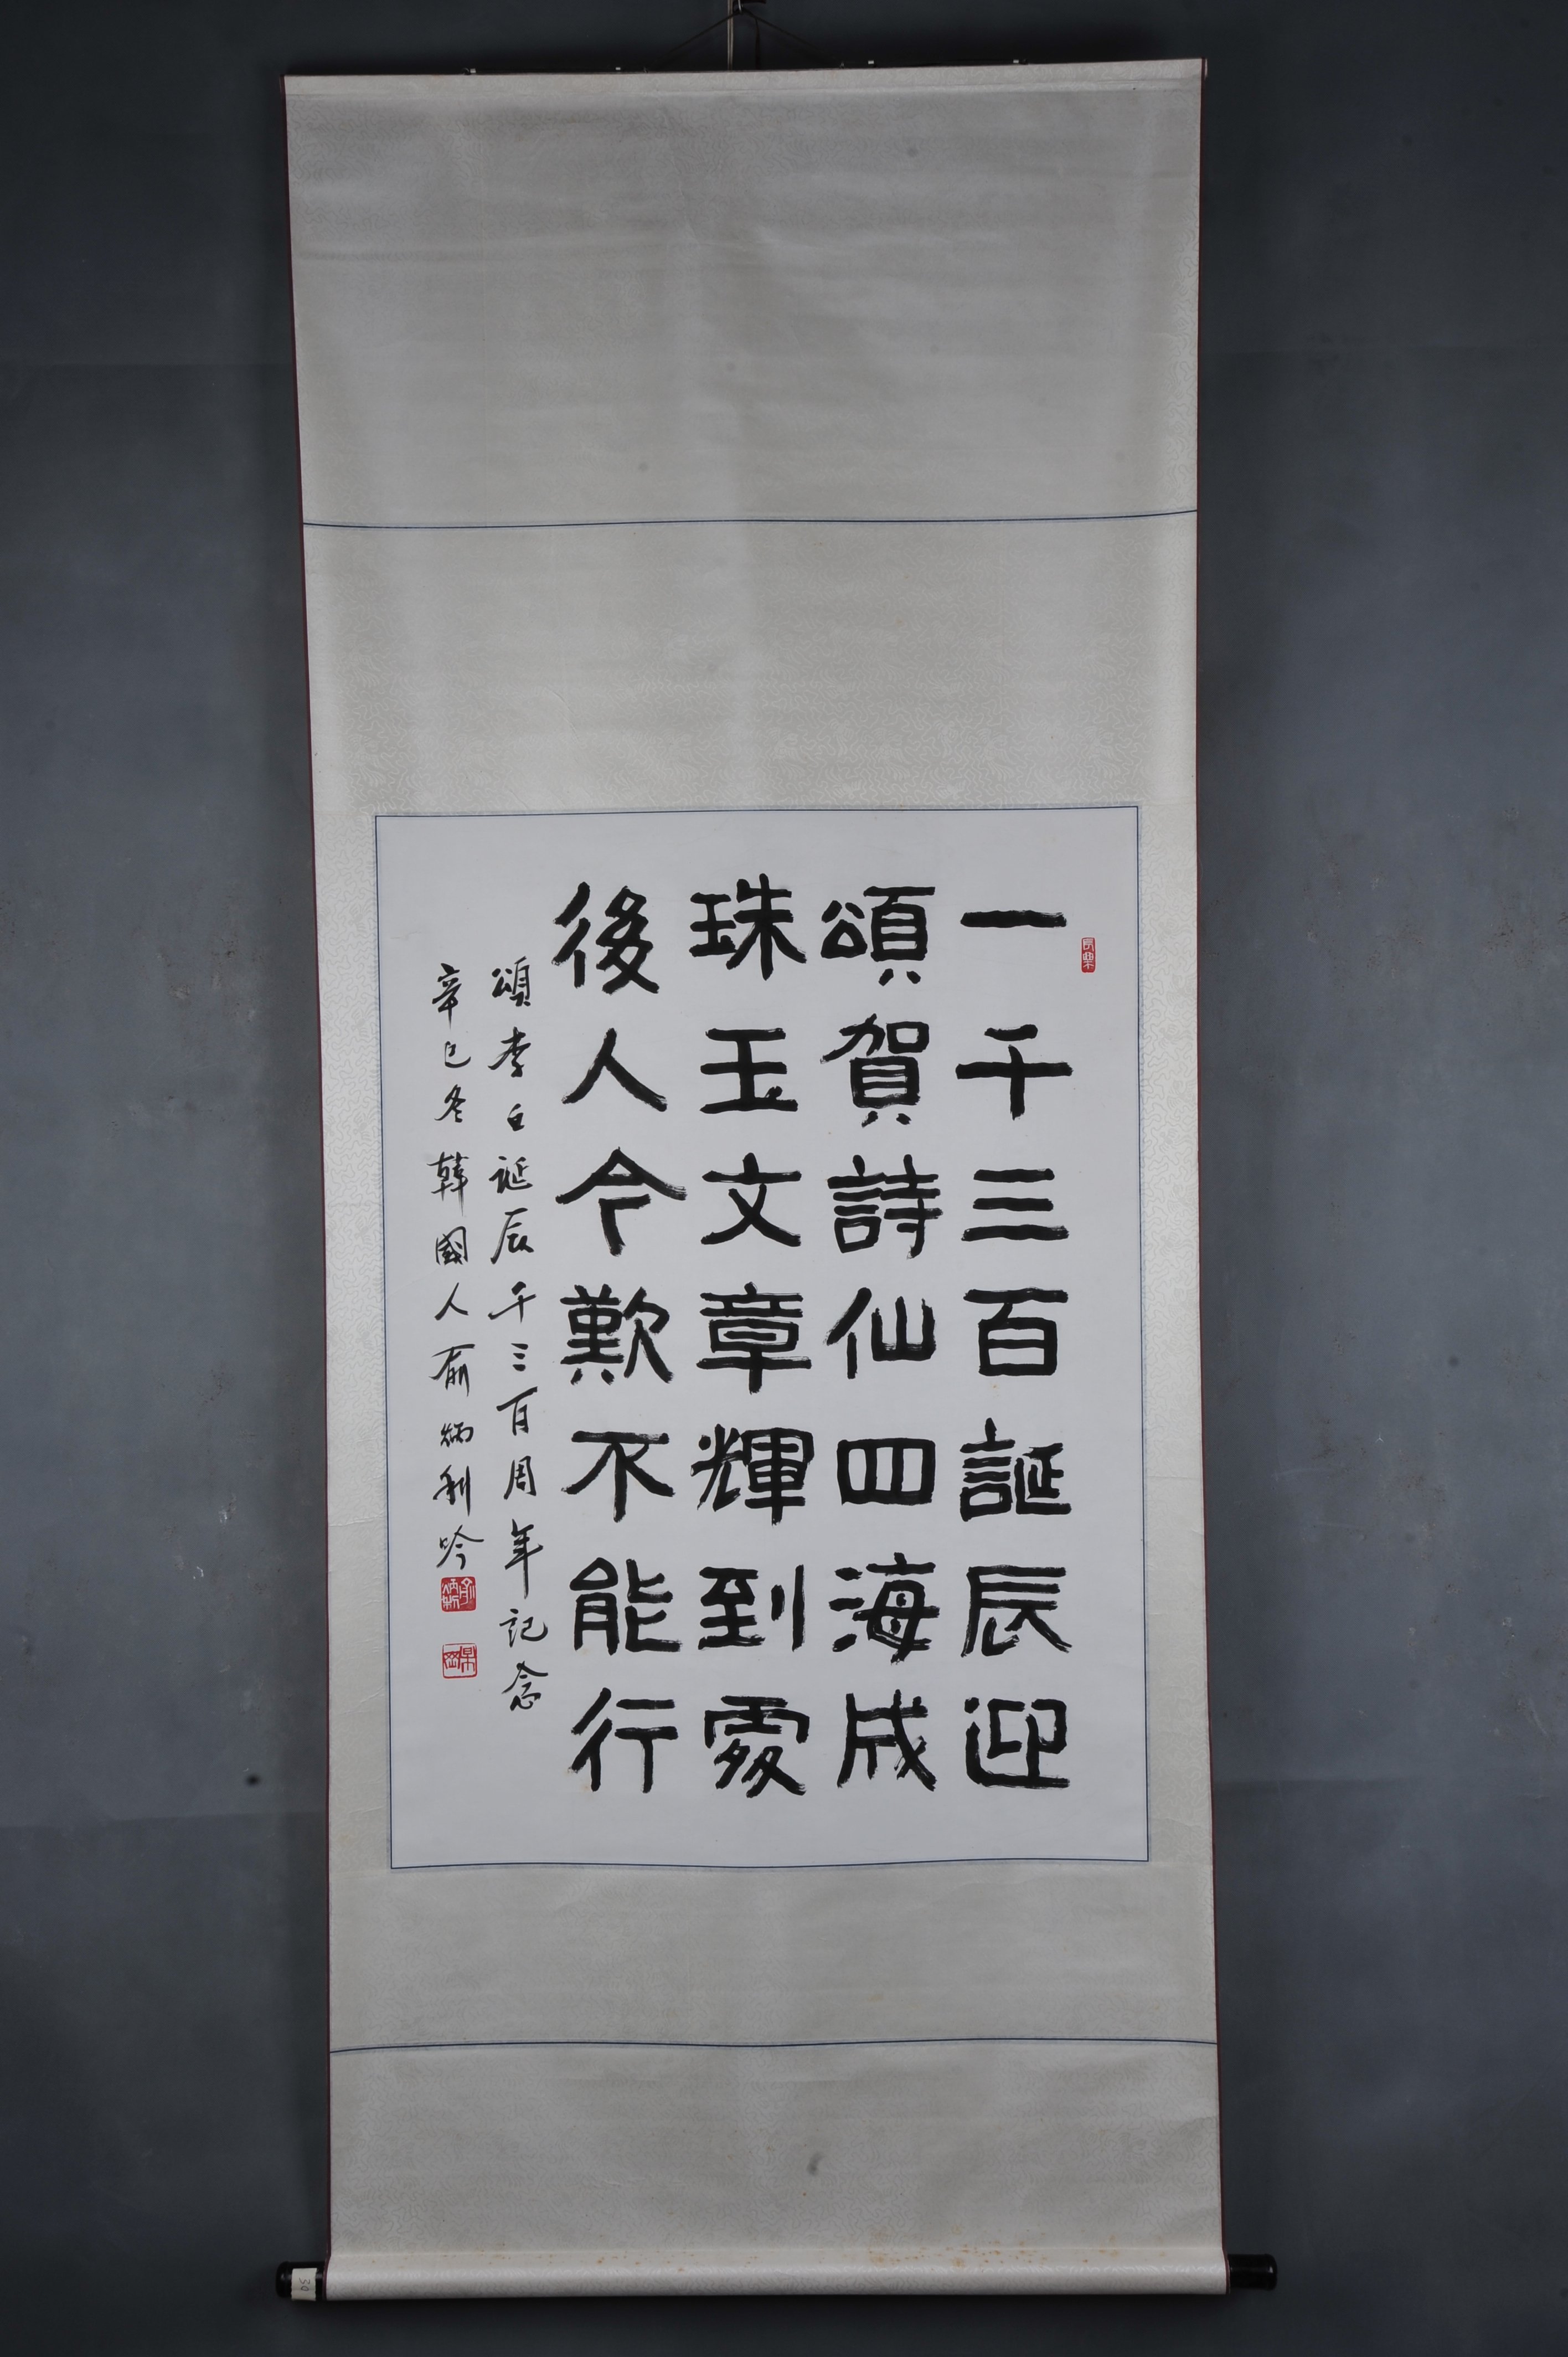 一千三百誕辰迎
頌賀詩仙四海成
珠玉文章輝到處
後人今歎不能行
頌李白誕辰千三百周年記念
辛巳冬韓國人俞炳利吟
30